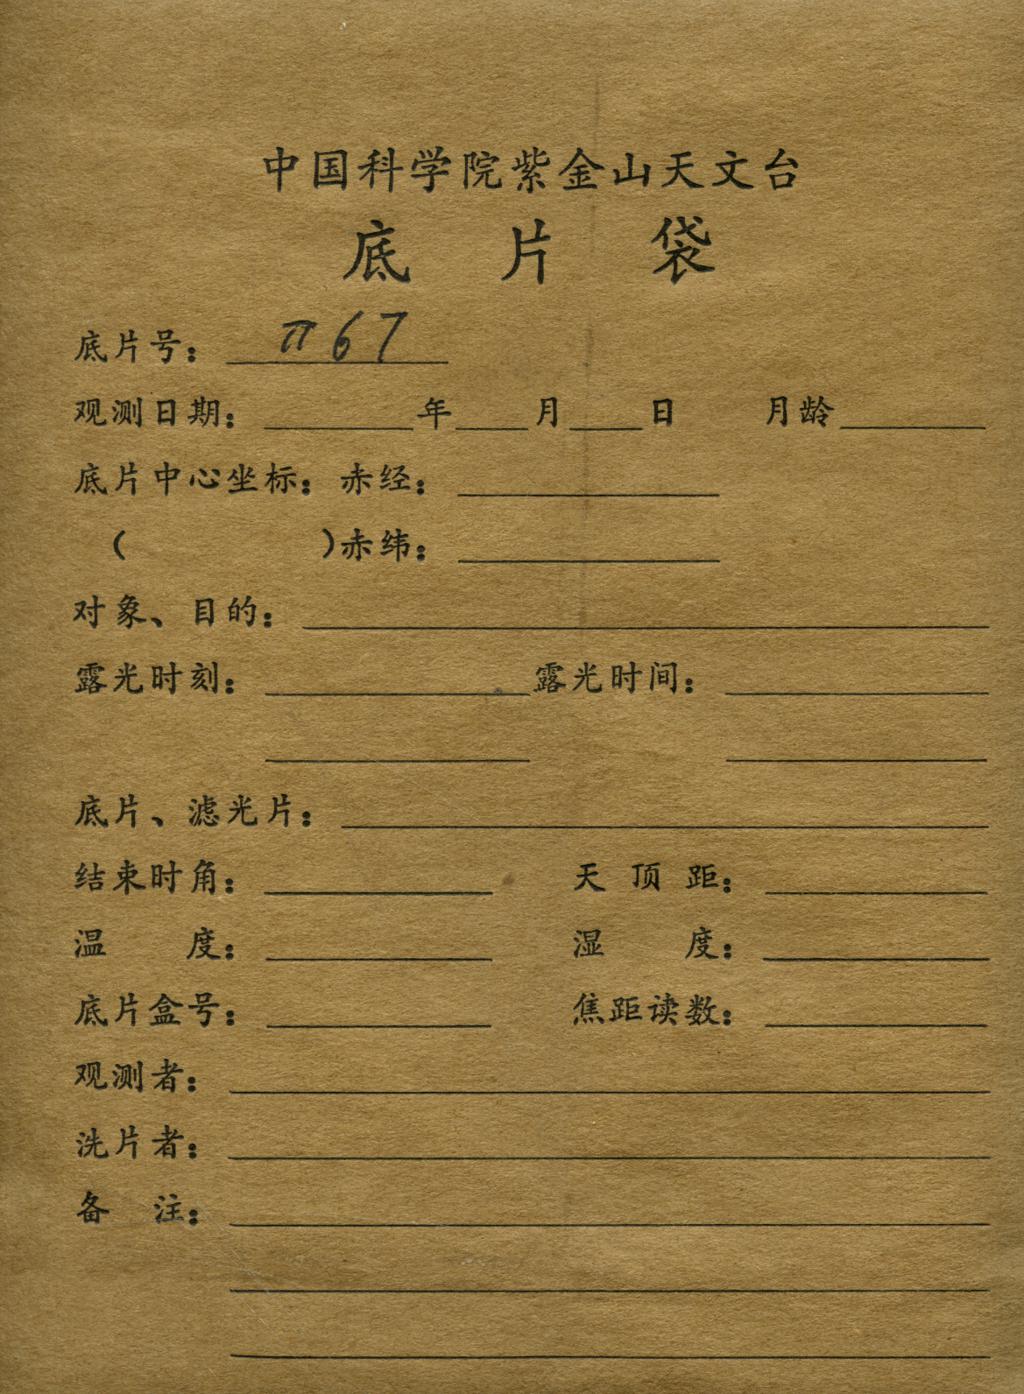 中国科学院紫金山天文台
底片袋
底片号：π67
观测日期：年 月 日 月龄
底片中心坐标：赤经：
（ ）赤纬：
对象、目的：
露光时刻： 露光时间：
底片、滤光片：
结束时角： 天顶距：
温度： 湿度：
底片盒号： 焦距读数：
观测者：
洗片者：
备注：